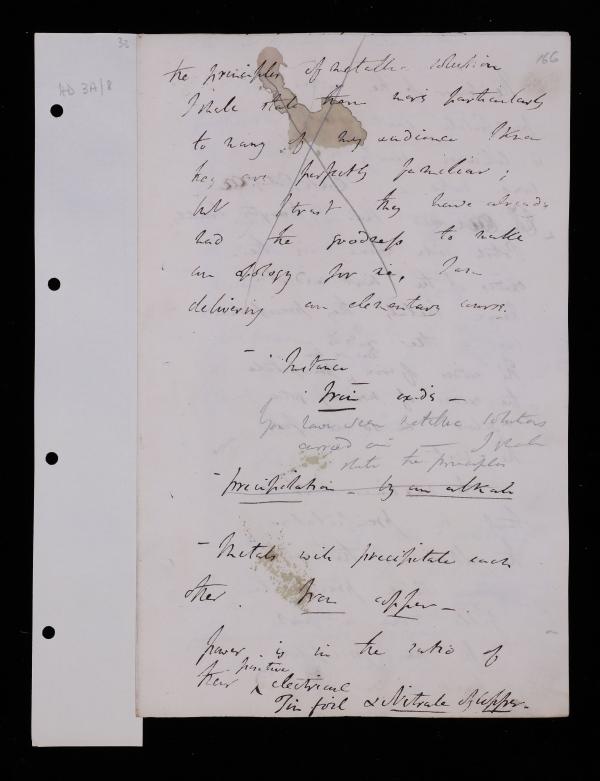 32
166
HD 3A/8
the principles of metallic solution
I shall state them more particularly
to many of my audience I know
they are perfectly familiar;
but I trust they have already
had the goodness to make
an apology for me, I am
delivering an elementary course.
– Instance
Iron
You have seen metallic solutions
carried on — I shall
state the principles
- precipitation - by an alkali
- Metals will precipitate each
other. Iron copper —.
power is in the ratio of
their ^ positive electrical
Tin foil & Nitrate of copper.